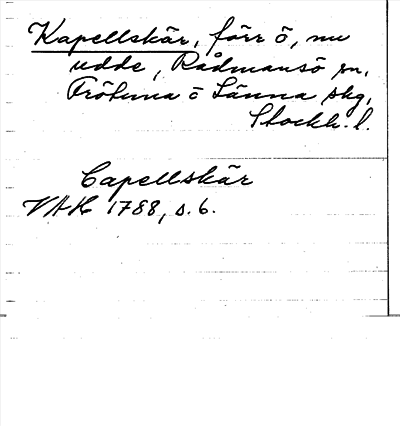 Kapellskär, förr ö, nu
udde, Rådmansö sn,
Frötuna o Länna skg,
Stockh. l.
Capellskär
VAH 1788, s. 6.